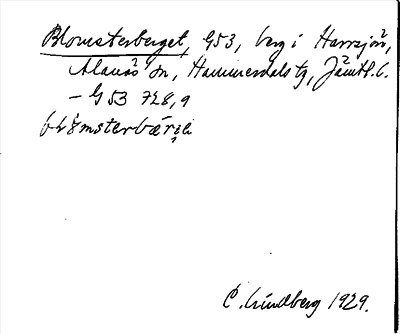 Blomsterberget, G53, berg i Harrsjön,
Alanäs sn, Hammerdals tg, Jämtl. l.
— G 53 728,9
C. Lindberg 1929.